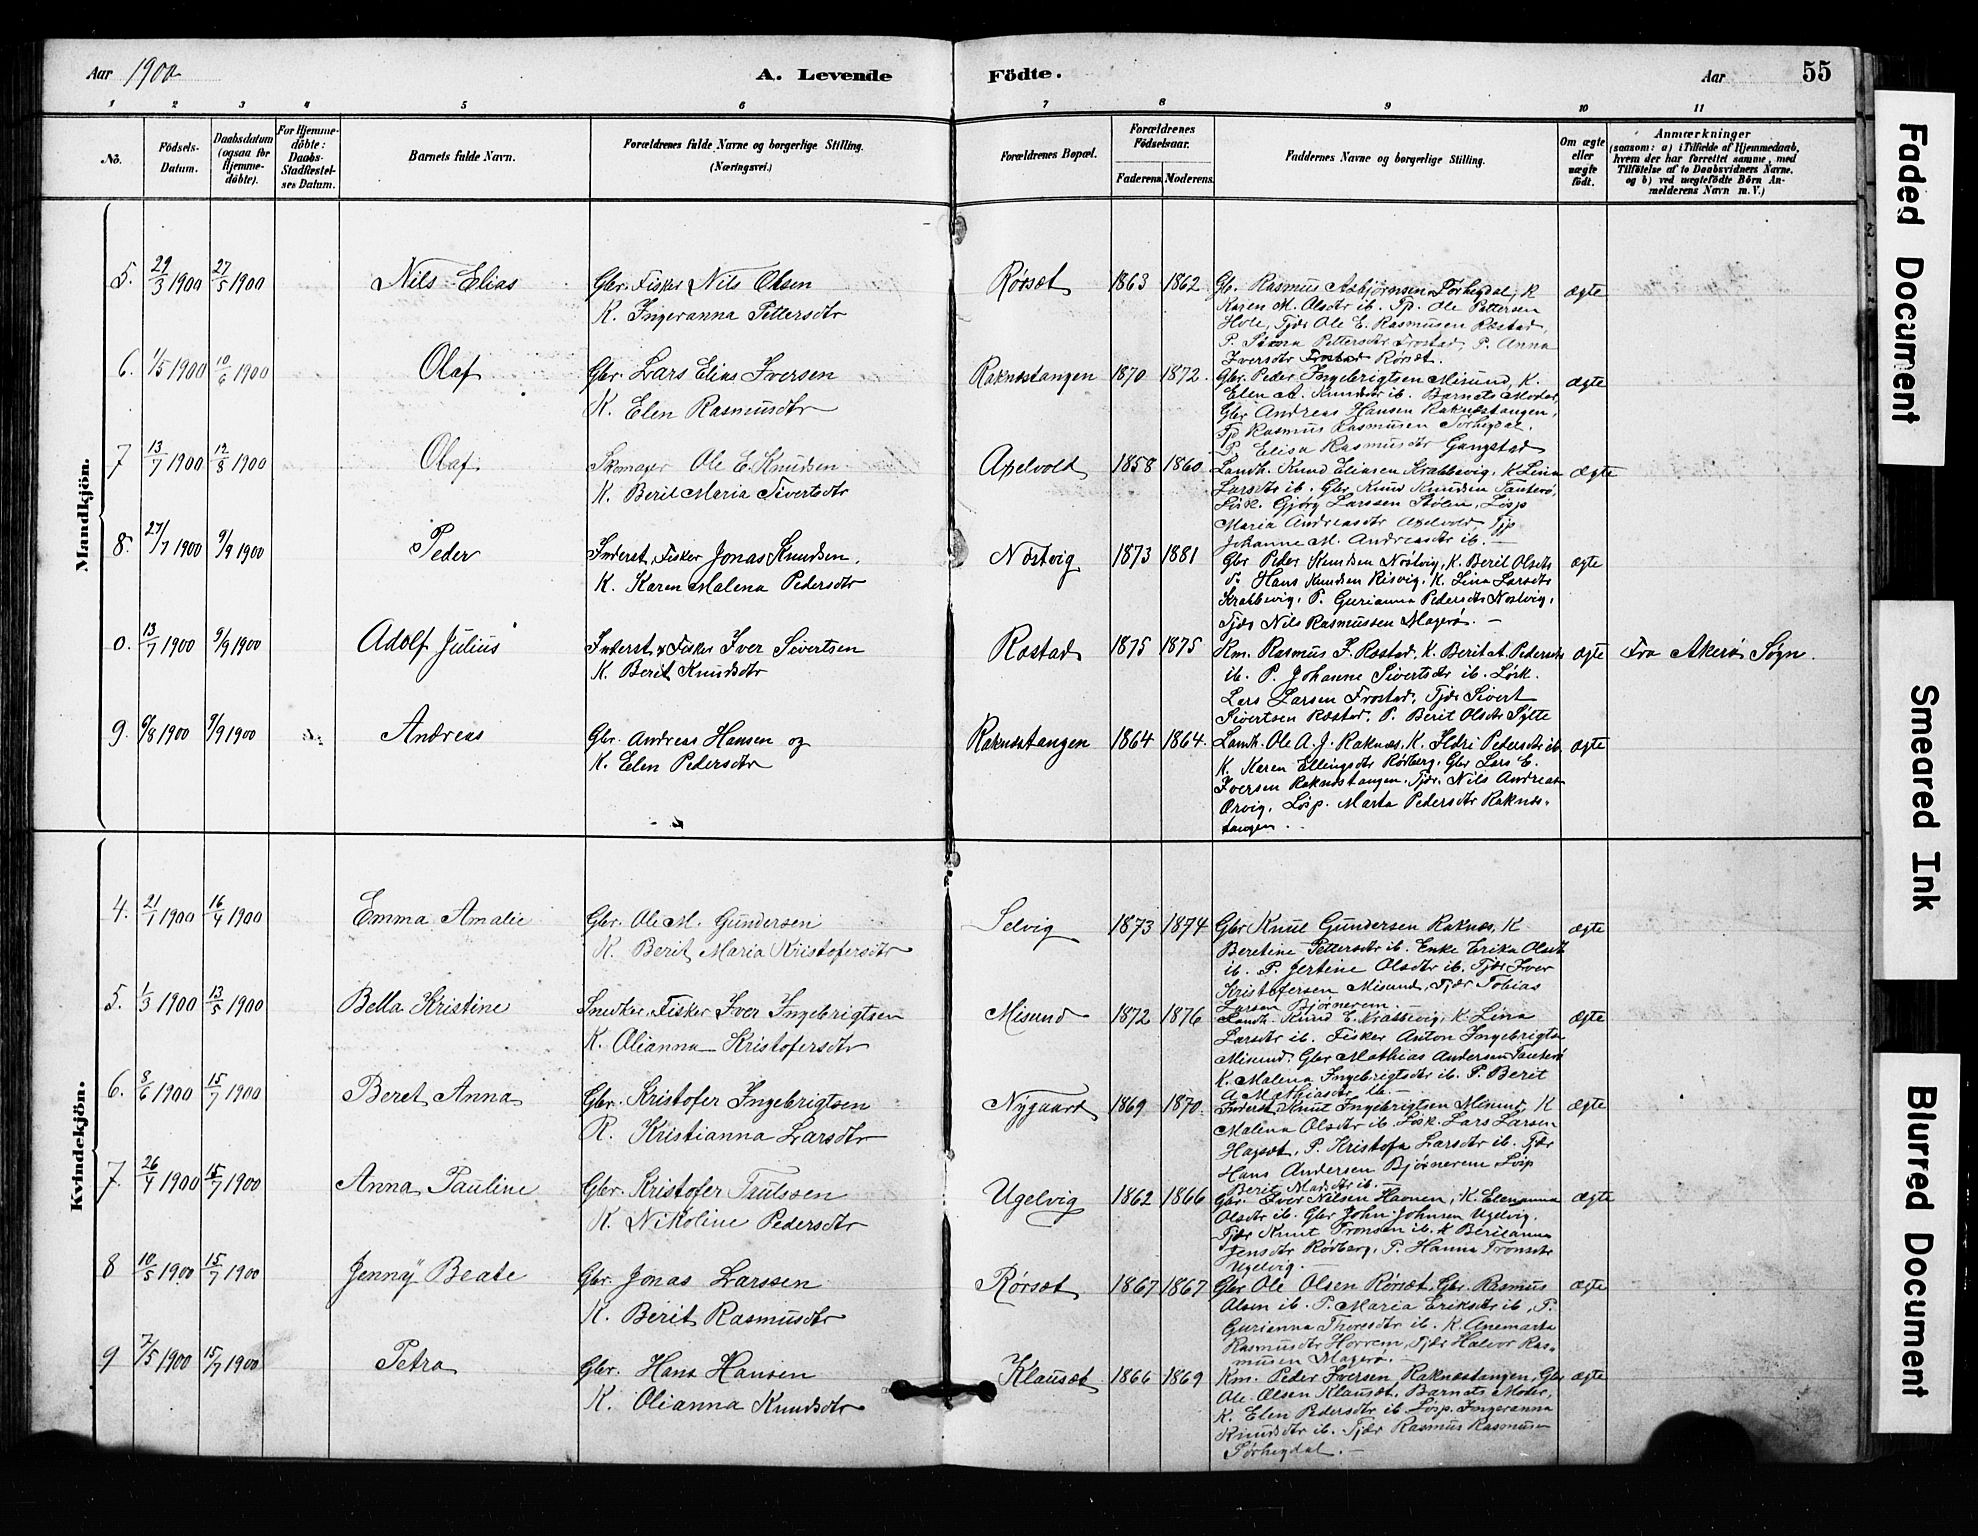 Aar 1900
A. Levende Födte.
Aar
55
1 2 3 4 5 6 7 8 9 10 11
No.
Födsels-Datum.
Daabsdatum (ogsaa for Hjemme-döbte).
For Hjemme-döbte: Daabs-Stadfæstel-ses Datum.
Barnets fulde Navn.
Forældrenes fulde Navne og borgerlige Stilling. (Næringsvei.)
Forældrenes Bopæl.
Forældrenes Födselsaar.
Faderens. Moderens.
Faddernes Navne og borgerlige Stilling.
Om ægte eller uægte födt.
Anmærkninger
(saasom: a) i Tilfælde af Hjemmedaab,
hvem der har forrettet samme, med
Tilföielse af to Daabsvidners Navne.
og b) ved uægtefödte Börn An-
melderens Navn m. V.)
Mandkjön.
5. 29/3 1900 27/5 1900 Nils Elias Gbr. Fisker Nils Olsen Rørsæt 1863 1862 Gb. Rasmus Asbjørnsen Sørhegdal, K ægte
K. Ingeranna Pettersdtr
Karen M. Olsdtr ib. Tp. Ole Pettersen
Hole, Tjdr Ole E. Rasmusen Rostad,
P. Pettersdtr Frostad, P. Anna
Iversdtr Rørsæt.
6. 1/5 1900 10/6 1900 Olaf Gbr. Lars Elias Iversen Raknestangen 1870 1872. Gbr. Peder Ingebrigtsen Misund, K. ægte
K. Elen Rasmusdtr
Elen A. Knudsdtr ib. Barnets Moder,
Gbr Andreas Hansen Raknæstangen,
Tp Rasmus Rasmusen Sørhegdal.
P. Elisa Rasmusdtr Gangstad
7 13/7 1900 12/8 1900 Olaf Skomager Ole E. Knudsen Axelvold 1858 1860 Landh. Knud Eliasen Krabbevig, K Lina ægte
K. Berit Maria Sivertsdtr
Larsdtr ib. Gbr Knud Knudsen Tauterö,
Gjörg Larssen Stølen, Løsp
Maria Andreasdtr Axelvold, Tjp
Johanne M. Andreasdtr ib. —
8. 27/7 1900 9/9 1900 Peder Inderst, Fisker Jonas Knudsen. Nøstvig 1873 1881 Gbr Peder Knudsen Nöstvig, K. Berit Olsdtr ægte
K. Karen Malena Pedersdtr
Hans Knudsen Risvig, K. Lina Larsdtr
Krabbevig, P. Gurianna Pedersdtr Nøstvig,
Tjdr Nils Rasmussen Magerø. —
0. 13/7 1900 9/9 1900 Adolf Julius Inderst & Fisker Iver Sivertsen Rostad 1875 1875 Km. Rasmus J. Rostad, K. Berit A. Pedersdtr ægte Fra Akerø Sogn.
K. Berit Knudsdtr
ib. P. Johanne Sivertsdtr ib. Løsk.
Lars Larsen Frostad, Tjdr Sivert
Sivertsen Rostad, P. Berit Olsdtr Sylte
9. 6/8 1900 9/9 1900 Andreas Gbr. Andreas Hansen og Raknæstangen 1864 1864. Landh. Ole A. J. Raknæs, K. Ildri Pedersdtr ib. ægte
K. Elen Pedersdtr
K. Karen Ellingsdtr Rødberg, Gbr Lars E.
Iversen Raknæstangen, Tjdr. Nils Andreas
Orvig, Løsp. Marta Pedersdtr Raknæs-
tangen. .
Kvindekjön.
4. 21/1 1900 16/4 1900 Emma Amalie Gbr. Ole M. Gundersen Selvig 1873 1874 Gbr Knut Gundersen Raknæs, K ægte
K. Berit Maria Kristofersdtr
Beretine Pettersdtr ib. Enke Erika Olsdtr
ib. P. Jertine Olsdtr ib. Tjdr Iver
Kristofersen Misund, Tjdr Tobias
Larsen Bjørnerem.
5. 1/3 1900 13/5 1900 Bella Kristine Snedker, Fisker Iver Ingebrigtsen Misund 1872 1876 Landh. Knud E. Krabbevig, K. Lina ægte
K. Olianna Kristofersdtr
Larsdtr ib. Fisker Anton Ingebrigts.
Misund, Gbr Mathias Andersen Tauterö
K. Malena Ingebrigtsdtr ib. P. Berit
A Mathiasdtr ib.
6. 3/6 1900 15/7 1900 Beret Anna Gbr. Kristofer Ingebrigtsen Nygaard 1869 1870. Inderst Knut Ingebrigtsen Misund, K ægte
K. Kristianna Larsdtr
Malena Olsdtr ib. Løsk. Lars Larsen
Hagsæt, P. Kristofa Larsdtr ib. Tjdr
Hans Andersen Bjørnerem Løsp
Berit Madsdtr ib. —
7. 26/4 1900 15/7 1900 Anna Pauline Gbr. Kristofer Paulssen Ugelvig 1862 1866 Gbr. Iver Nilsen Havnen, K. Elenanna ægte
K. Nikoline Pedersdtr
Olsdtr ib. Gbr John Johnsen Ugelvig.
Tjdr Knut Tronsen ib. K Beritanna
Jensdtr Rödberg, P. Hanna Tronsdtr
Ugelvig. —
8 10/5 1900 15/7 1900 Jenny Beate Gbr. Jonas Larssen Rørsæt 1867 1867 Gbr Ole Olsen Rørsæt, Gbr. Rasmus ægte
K. Berit Rasmusdtr
Olsen ib. P. Maria Eriksdtr ib, P.
Gurianna Thoresdtr ib. K. Anemarta
Rasmusdtr Horrem, Tjdr Halvor Ras-
musen Magerø. —
9 7/5 1900 15/7 1900 Petra Gbr. Hans Hansen Klausæt 1866 1869 Km. Peder Iversen Raknæstangen, Gbr ægte
K. Olianna Knudsdtr
Ole Olsen Klausæt, Barnets Moder,
K. Elen Pedersdtr ib Løsp. Ingeranna
Knudsdtr ib. Tjdr Rasmus Rasmusen
Sørhegdal. —
Faded Document
Smeared Ink
Blurred Document